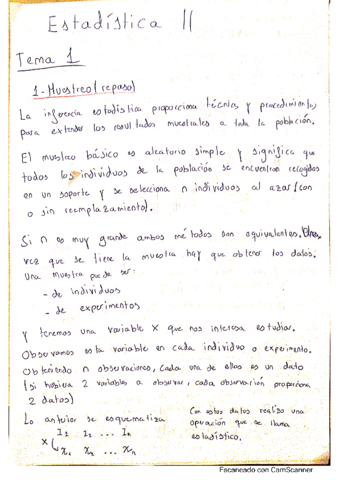 Estadística II
Tema 1
1 - Muestreo (repaso)
La inferencia estadística proporciona técnicas y procedimientos,
para extender los resultados muestrales a toda la población.
El muestreo básico es aleatorio simple y significa que
todos los individuos de la población se encuentran recogidos
en un soporte y se selecciona n individuos al azar (con
o sin reemplazamiento).
Si n es muy grande ambos métodos son equivalentes. Una
vez que se tiene la muestra hay que obtener los datos.
Una muestra puede ser:
- de individuos
- de experimentos
y tenemos una variable X que nos interesa estudiar.
Observamos esta variable en cada individuo o experimento.
Obteniendo n observaciones, cada una de ellas es un dato
(si hubiera 2 variables a observar, cada observación proporciona
2 datos)
Lo anterior se esquematiza
I₁ I₂ ... Iₙ
X
x₁ x₂ ... xₙ
Con estos datos realizo una
operación que se llama
estadístico.
Escaneado con CamScanner